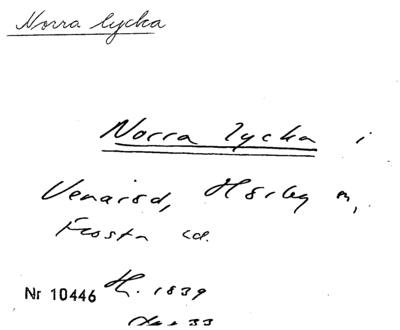 Norra lycka
Norra lycka i
Venarod, Hörby m,
Frosta
Nr 10446 H. 1839
33